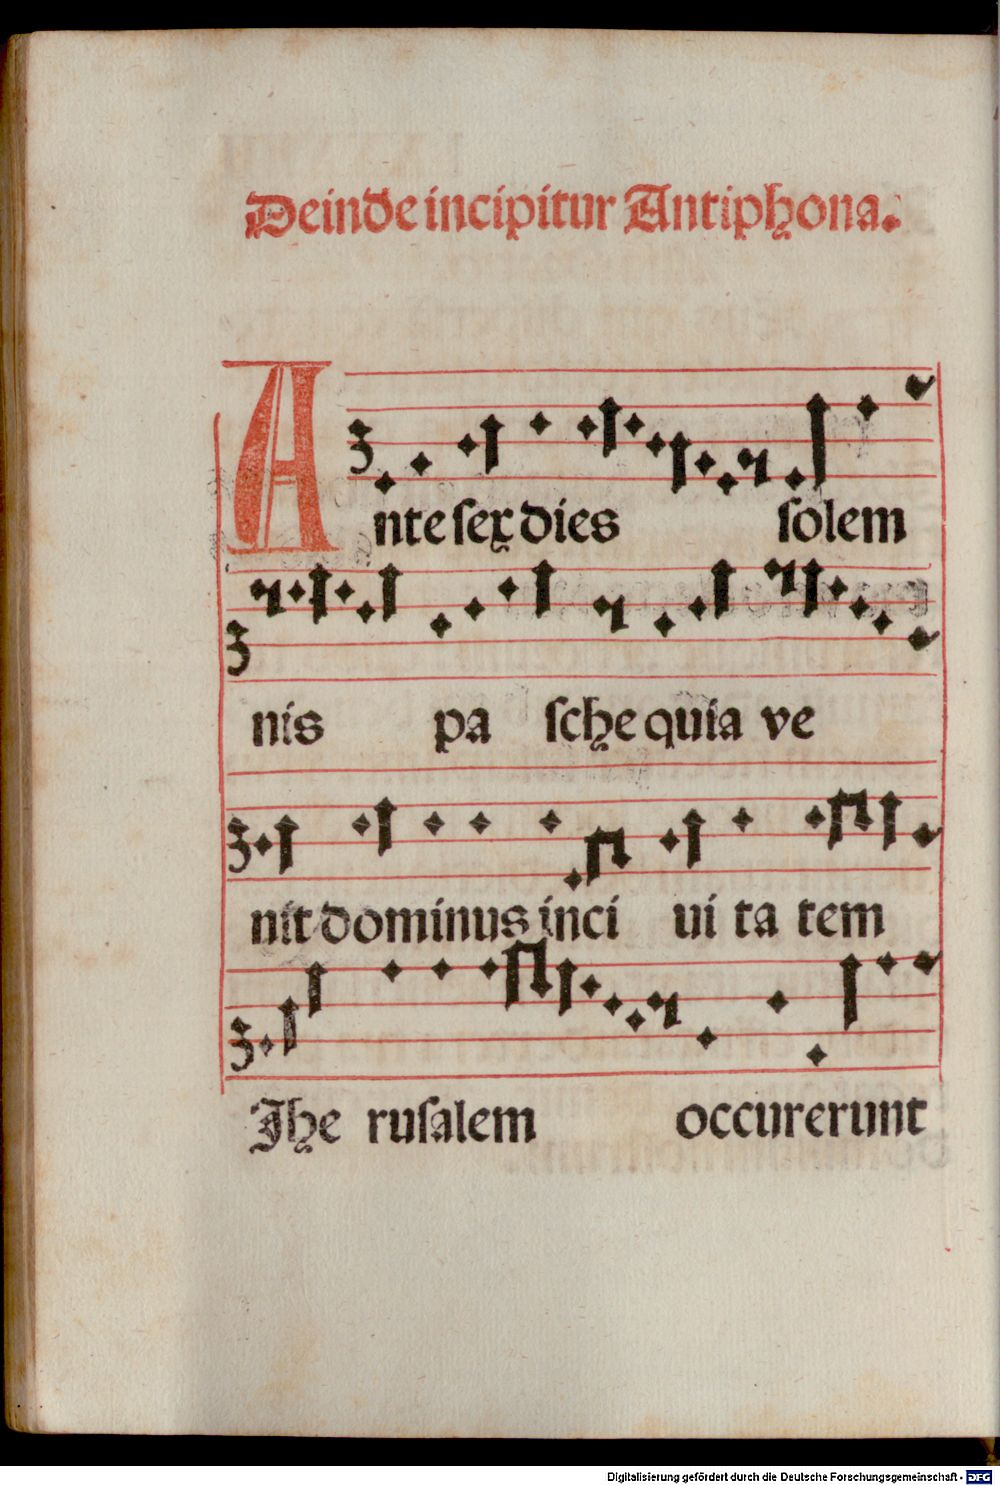 Deinde incipitur Antiphona.
Ante sex dies solem
nis pa sche quia ve
nit dominus in ci ui ta tem
Jhe rusalem occurerunt
Digitalisierung gefördert durch die Deutsche Forschungsgemeinschaft - DFG